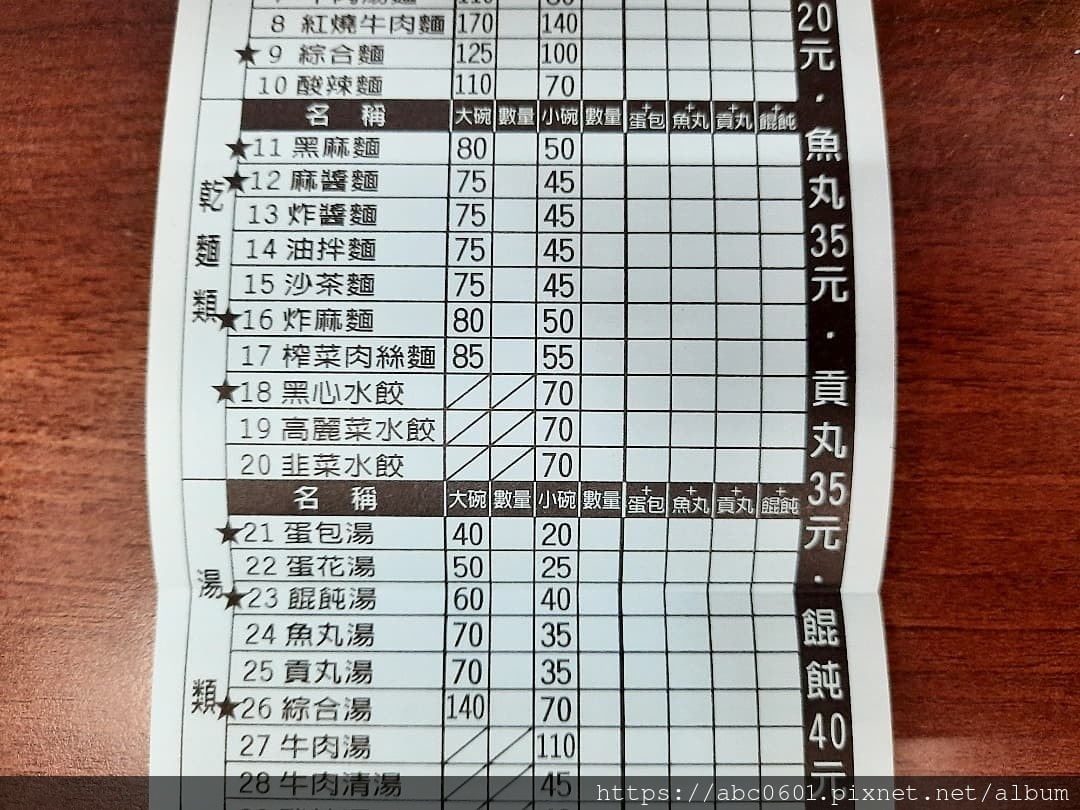 8 紅燒牛肉麵 170 140
★ 9 綜合麵 125 100
10 酸辣麵 110 70
名 稱 大碗 數量 小碗 數量 +蛋包 +魚丸 +貢丸 +餛飩
★11 黑麻麵 80 50
★12 麻醬麵 75 45
13 炸醬麵 75 45
14 油拌麵 75 45
15 沙茶麵 75 45
★16 炸麻麵 80 50
17 榨菜肉絲麵 85 55
★18 黑心水餃 70
19 高麗菜水餃 70
20 韭菜水餃 70
乾麵類
名 稱 大碗 數量 小碗 數量 +蛋包 +魚丸 +貢丸 +餛飩
★21 蛋包湯 40 20
22 蛋花湯 50 25
★23 餛飩湯 60 40
24 魚丸湯 70 35
25 貢丸湯 70 35
★26 綜合湯 140 70
27 牛肉湯 110
28 牛肉清湯 45
湯類
20元・魚丸35元・貢丸35元・餛飩40元
https://abc0601.pixnet.net/album